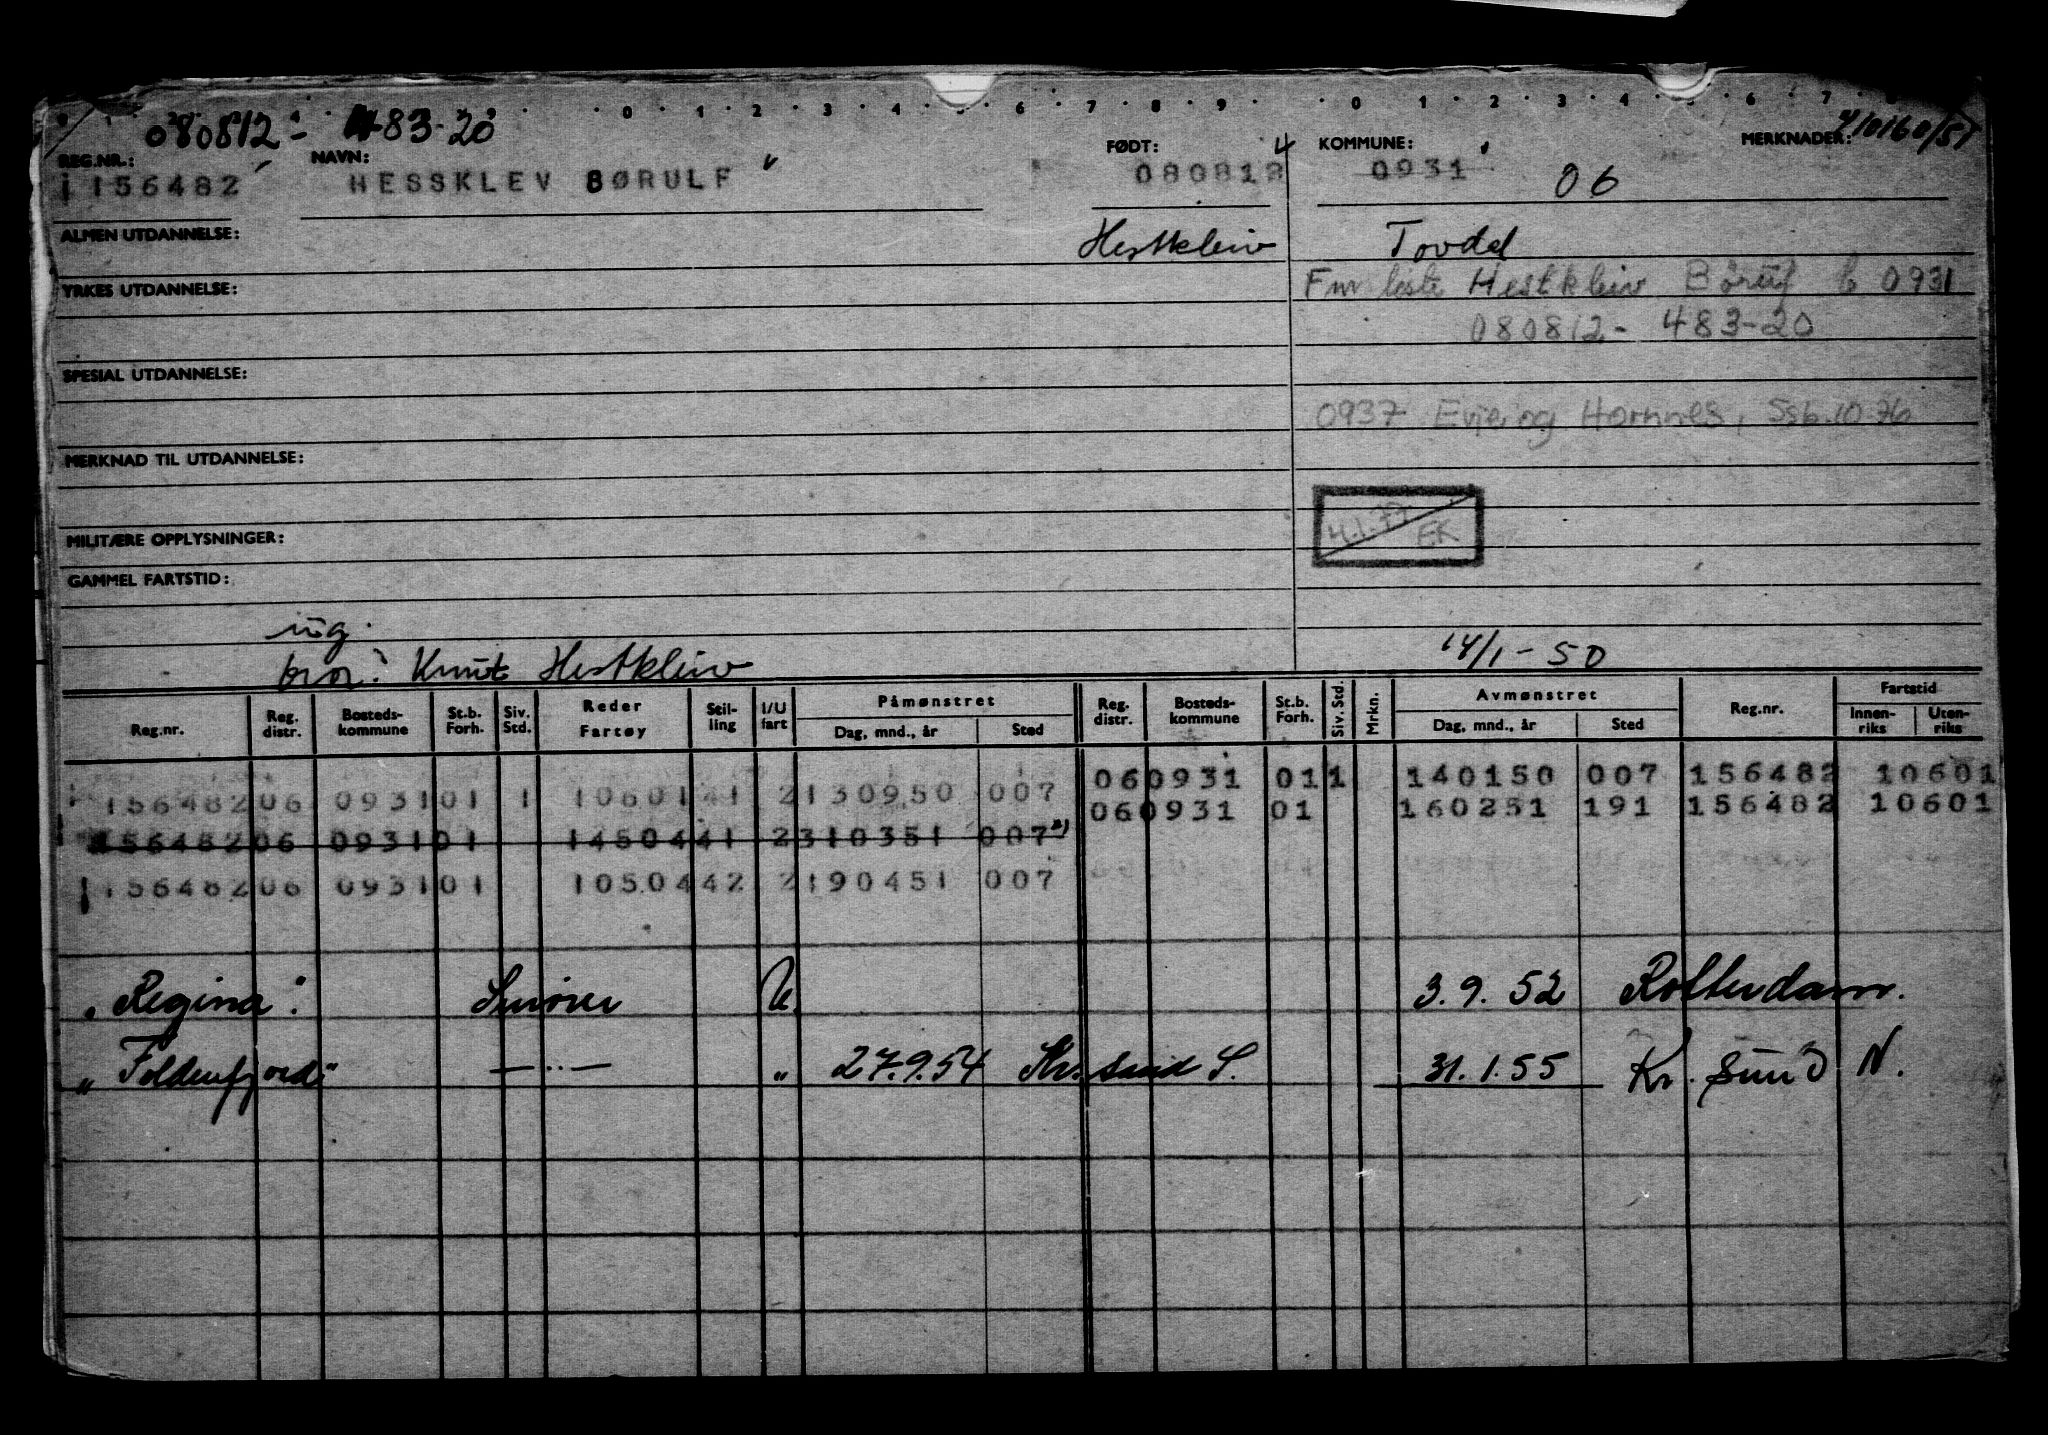 0 1 2 3 4 6 7 8 9 0 1 2 3 4 6 7
080812 - 483-20
REG.NR.: NAVN: FØDT: 4 KOMMUNE: MERKNADER: 410160/51
156482 HESSKLEV BØRULF 080812 0931 06
ALMEN UTDANNELSE: Hestkleiv Tovdal
YRKES UTDANNELSE: Fm liste Hestkleiv Børulf 0931
080812 - 483-20
SPESIAL UTDANNELSE:
0937 Evje og Hornnes, Ssb. 10-76
MERKNAD TIL UTDANNELSE:
4.1.77 EK
MILITÆRE OPPLYSNINGER:
GAMMEL FARTSTID:
ug.
bror: Knut Hestkleiv 14/1-50
Reg.nr. Reg. distr. Bosteds-kommune St.b. Forh. Siv. Std. Reder Fartøy Stil-ling I/U fart Påmønstret Dag, mnd., år Sted Reg. distr. Bosteds-kommune St.b. Forh. Siv. Std. Mrkn. Avmønstret Dag, mnd., år Sted Reg.nr. Fartstid Innen-riks Uten-riks
06 0931 01 1 140150 007 156482 10601
156482 06 0931 01 1 10601 41 2 130950 007
06 0931 01 160251 191 156482 10601
156482 06 0931 01 14504 41 2 310351 007 x)
156482 06 0931 01 10504 42 2 190451 007
"Regina". Smører U. 3.9.52 Rotterdam.
"Foldenfjord" — " — " 27.9.54 Kr. sand S. 31.1.55 Kr. sund N.